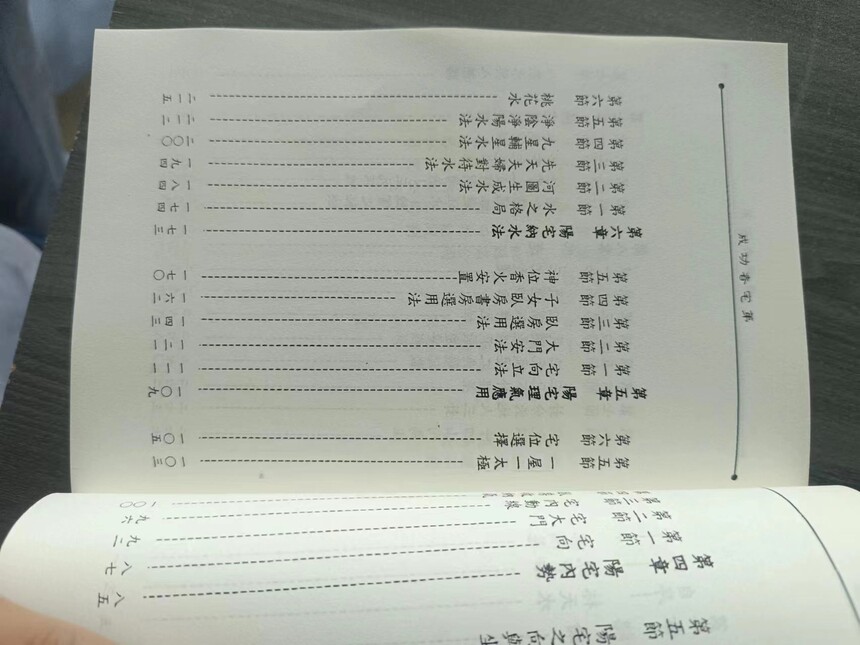 第五節 陽宅之向與坐
第四章 陽宅內勢 八五
第一節 宅向 八七
第二節 宅大門 九二
第三節 宅內動線 九六
一〇〇
第五節 一屋一太極 一〇三
第六節 宅位選擇 一〇五
第五章 陽宅理氣應用 一〇九
第一節 宅向立法 一一一
第二節 大門安法 一二一
第三節 臥房選用法 一四三
第四節 子女臥房書房選用法 一六二
第五節 神位香火安置 一七〇
第六章 陽宅納水法 一七三
第一節 水之格局 一七四
第二節 河圖生成水法 一八四
第三節 先天夫婦對待水法 一九四
第四節 九星輔星水法 二〇〇
第五節 淨陰淨陽水法 二一二
第六節 桃花水 二一五
成功春宅第